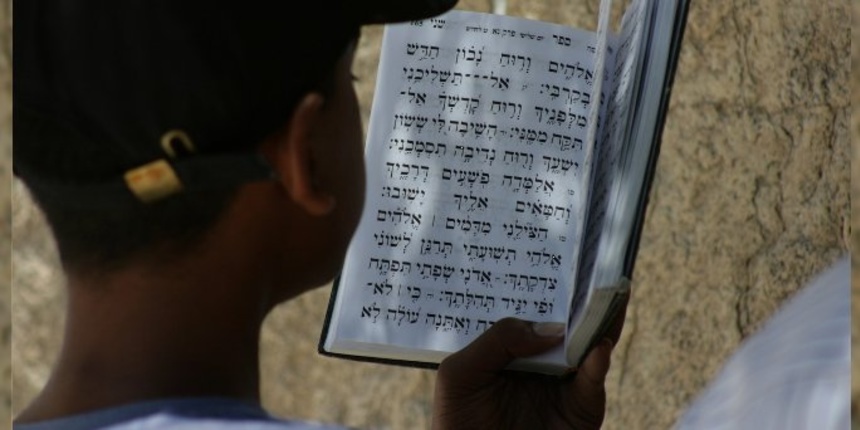 ספר שני
אֱלֹהִים וְרוּחַ נָכוֹן חַדֵּשׁ
בְּקִרְבִּי׃ אַל־תַּשְׁלִיכֵנִי
מִלְּפָנֶיךָ וְרוּחַ קָדְשְׁךָ אַל־
תִּקַּח מִמֶּנִּי׃ הָשִׁיבָה לִּי שְׂשׂוֹן
יִשְׁעֶךָ וְרוּחַ נְדִיבָה תִסְמְכֵנִי׃
אֲלַמְּדָה פֹשְׁעִים דְּרָכֶיךָ
וְחַטָּאִים אֵלֶיךָ יָשׁוּבוּ׃
הַצִּילֵנִי מִדָּמִים ׀ אֱלֹהִים
אֱלֹהֵי תְּשׁוּעָתִי תְּרַנֵּן לְשׁוֹנִי
צִדְקָתֶךָ׃ אֲדֹנָי שְׂפָתַי תִּפְתָּח
וּפִי יַגִּיד תְּהִלָּתֶךָ׃ כִּי ׀ לֹא־
וְאֶתֵּנָה עוֹלָה לֹא